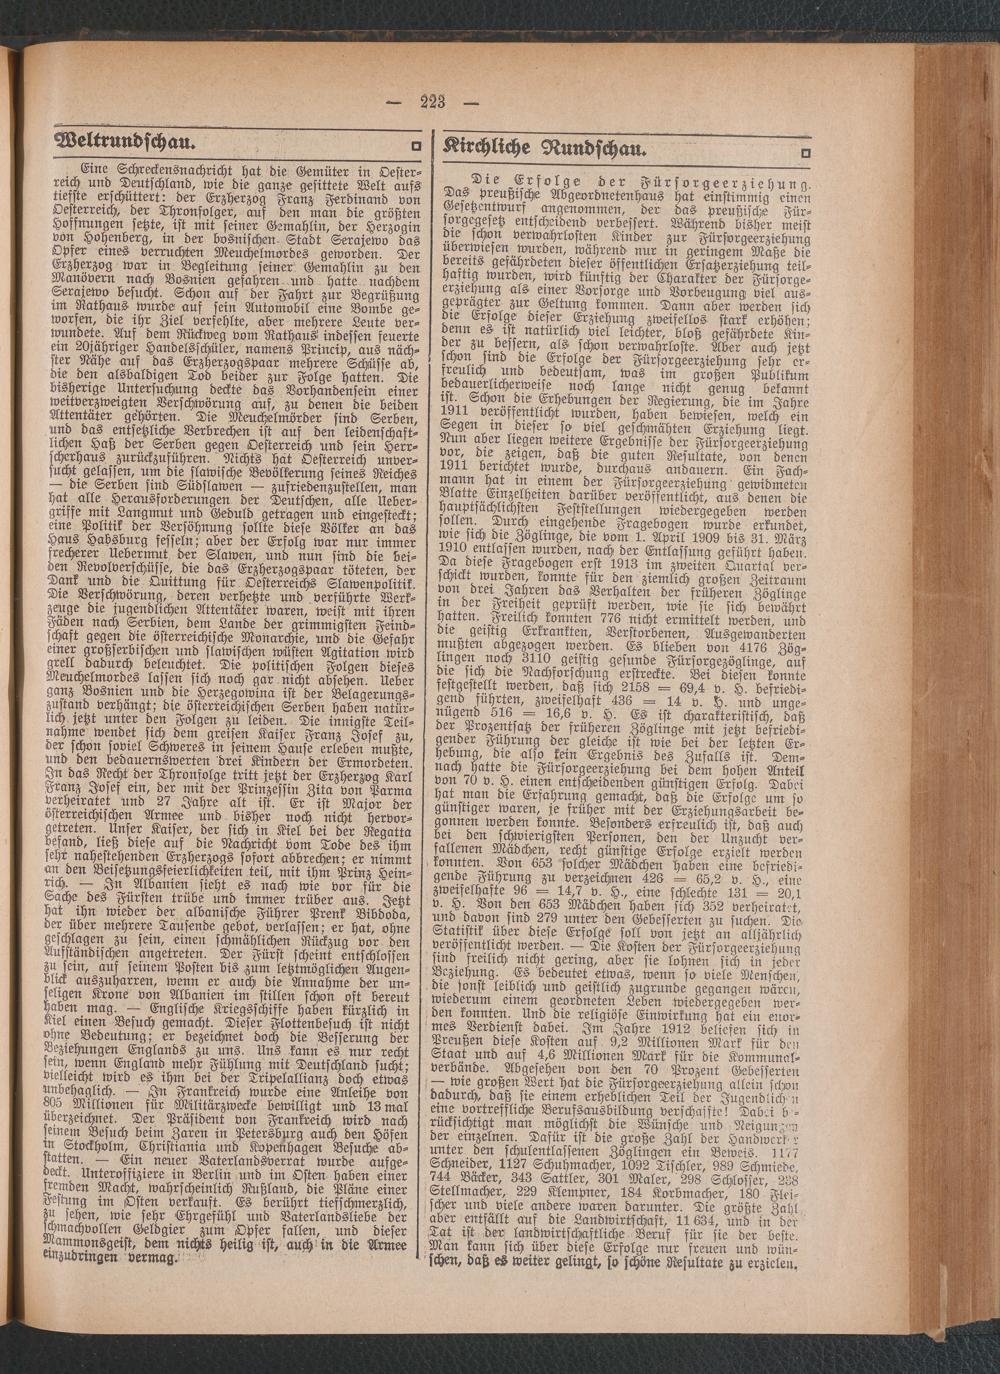 — 223 —
Weltrundschau.
Eine Schreckensnachricht hat die Gemüter in Oester-
reich und Deutschland, wie die ganze gesittete Welt aufs
tiefste erschüttert: der Erzherzog Franz Ferdinand von
Oesterreich, der Thronfolger, auf den man die größten
Hoffnungen setzte, ist mit seiner Gemahlin, der Herzogin
von Hohenberg, in der bosnischen Stadt Serajewo das
Opfer eines verruchten Meuchelmordes geworden. Der
Erzherzog war in Begleitung seiner Gemahlin zu den
Manövern nach Bosnien gefahren und hatte nachdem
Serajewo besucht. Schon auf der Fahrt zur Begrüßung
im Rathaus wurde auf sein Automobil eine Bombe ge-
worfen, die ihr Ziel verfehlte, aber mehrere Leute ver-
wundete. Auf dem Rückweg vom Rathaus indessen feuerte
ein 20jähriger Handelsschüler, namens Princip, aus näch-
ster Nähe auf das Erzherzogspaar mehrere Schüsse ab,
die den alsbaldigen Tod beider zur Folge hatten. Die
bisherige Untersuchung deckte das Vorhandensein einer
weitverzweigten Verschwörung auf, zu denen die beiden
Attentäter gehörten. Die Meuchelmörder sind Serben,
und das entsetzliche Verbrechen ist auf den leidenschaft-
lichen Haß der Serben gegen Oesterreich und sein Herr-
scherhaus zurückzuführen. Nichts hat Oesterreich unver-
sucht gelassen, um die slawische Bevölkerung seines Reiches
— die Serben sind Südslawen — zufriedenzustellen, man
hat alle Herausforderungen der Deutschen, alle Ueber-
griffe mit Langmut und Geduld getragen und eingesteckt;
eine Politik der Versöhnung sollte diese Völker an das
Haus Habsburg fesseln; aber der Erfolg war nur immer
frecherer Uebermut der Slawen, und nun sind die bei-
den Revolverschüsse, die das Erzherzogspaar töteten, der
Dank und die Quittung für Oesterreichs Slawenpolitik.
Die Verschwörung, deren verhetzte und verführte Werk-
zeuge die jugendlichen Attentäter waren, weist mit ihren
Fäden nach Serbien, dem Lande der grimmigsten Feind-
schaft gegen die österreichische Monarchie, und die Gefahr
einer großserbischen und slawischen wüsten Agitation wird
grell dadurch beleuchtet. Die politischen Folgen dieses
Meuchelmordes lassen sich noch gar nicht absehen. Ueber
ganz Bosnien und die Herzegowina ist der Belagerungs-
zustand verhängt; die österreichischen Serben haben natür-
lich jetzt unter den Folgen zu leiden. Die innigste Teil-
nahme wendet sich dem greisen Kaiser Franz Josef zu,
der schon soviel Schweres in seinem Hause erleben mußte,
und den bedauernswerten drei Kindern der Ermordeten.
In das Recht der Thronfolge tritt jetzt der Erzherzog Karl
Franz Josef ein, der mit der Prinzessin Zita von Parma
verheiratet und 27 Jahre alt ist. Er ist Major der
österreichischen Armee und bisher noch nicht hervor-
getreten. Unser Kaiser, der sich in Kiel bei der Regatta
befand, ließ diese auf die Nachricht vom Tode des ihm
sehr nahestehenden Erzherzogs sofort abbrechen; er nimmt
an den Beisetzungsfeierlichkeiten teil, mit ihm Prinz Hein-
rich. — In Albanien sieht es nach wie vor für die
Sache des Fürsten trübe und immer trüber aus. Jetzt
hat ihn wieder der albanische Führer Prenk Bibdoda,
der über mehrere Tausende gebot, verlassen; er hat, ohne
geschlagen zu sein, einen schmählichen Rückzug vor den
Aufständischen angetreten. Der Fürst scheint entschlossen
zu sein, auf seinem Posten bis zum letztmöglichen Augen-
blick auszuharren, wenn er auch die Annahme der un-
seligen Krone von Albanien im stillen schon oft bereut
haben mag. — Englische Kriegsschiffe haben kürzlich in
Kiel einen Besuch gemacht. Dieser Flottenbesuch ist nicht
ohne Bedeutung; er bezeichnet doch die Besserung der
Beziehungen Englands zu uns. Uns kann es nur recht
sein, wenn England mehr Fühlung mit Deutschland sucht;
vielleicht wird es ihm bei der Tripelallianz doch etwas
unbehaglich. — In Frankreich wurde eine Anleihe von
805 Millionen für Militärzwecke bewilligt und 13 mal
überzeichnet. Der Präsident von Frankreich wird nach
seinem Besuch beim Zaren in Petersburg auch den Höfen
in Stockholm, Christiania und Kopenhagen Besuche ab-
statten. — Ein neuer Vaterlandsverrat wurde aufge-
deckt. Unteroffiziere in Berlin und im Osten haben einer
fremden Macht, wahrscheinlich Rußland, die Pläne einer
Festung im Osten verkauft. Es berührt tiefschmerzlich,
zu sehen, wie sehr Ehrgefühl und Vaterlandsliebe der
schmachvollen Geldgier zum Opfer fallen, und dieser
Mammonsgeist, dem nichts heilig ist, auch in die Armee
einzudringen vermag.
Kirchliche Rundschau.
Die Erfolge der Fürsorgeerziehung.
Das preußische Abgeordnetenhaus hat einstimmig einen
Gesetzentwurf angenommen, der das preußische Für-
sorgegesetz entscheidend verbessert. Während bisher meist
die schon verwahrlosten Kinder zur Fürsorgeerziehung
überwiesen wurden, während nur in geringem Maße die
bereits gefährdeten dieser öffentlichen Ersatzerziehung teil-
haftig wurden, wird künftig der Charakter der Fürsorge-
erziehung als einer Vorsorge und Vorbeugung viel aus-
geprägter zur Geltung kommen. Dann aber werden sich
die Erfolge dieser Erziehung zweifellos stark erhöhen;
denn es ist natürlich viel leichter, bloß gefährdete Kin-
der zu bessern, als schon verwahrloste. Aber auch jetzt
schon sind die Erfolge der Fürsorgeerziehung sehr er-
freulich und bedeutsam, was im großen Publikum
bedauerlicherweise noch lange nicht genug bekannt
ist. Schon die Erhebungen der Regierung, die im Jahre
1911 veröffentlicht wurden, haben bewiesen, welch ein
Segen in dieser so viel geschmähten Erziehung liegt.
Nun aber liegen weitere Ergebnisse der Fürsorgeerziehung
vor, die zeigen, daß die guten Resultate, von denen
1911 berichtet wurde, durchaus andauern. Ein Fach-
mann hat in einem der Fürsorgeerziehung gewidmeten
Blatte Einzelheiten darüber veröffentlicht, aus denen die
hauptsächlichsten Feststellungen wiedergegeben werden
sollen. Durch eingehende Fragebogen wurde erkundet,
wie sich die Zöglinge, die vom 1. April 1909 bis 31. März
1910 entlassen wurden, nach der Entlassung geführt haben.
Da diese Fragebogen erst 1913 im zweiten Quartal ver-
schickt wurden, konnte für den ziemlich großen Zeitraum
von drei Jahren das Verhalten der früheren Zöglinge
in der Freiheit geprüft werden, wie sie sich bewährt
hatten. Freilich konnten 776 nicht ermittelt werden, und
die geistig Erkrankten, Verstorbenen, Ausgewanderten
mußten abgezogen werden. Es blieben von 4176 Zög-
lingen noch 3110 geistig gesunde Fürsorgezöglinge, auf
die sich die Nachforschung erstreckte. Bei diesen konnte
festgestellt werden, daß sich 2158 = 69,4 v. H. befriedi-
gend führten, zweifelhaft 436 = 14 v. H. und unge-
nügend 516 = 16,6 v. H. Es ist charakteristisch, daß
der Prozentsatz der früheren Zöglinge mit jetzt befriedi-
gender Führung der gleiche ist wie bei der letzten Er-
hebung, die also kein Ergebnis des Zufalls ist. Dem-
nach hatte die Fürsorgeerziehung bei dem hohen Anteil
von 70 v. H. einen entscheidenden günstigen Erfolg. Dabei
hat man die Erfahrung gemacht, daß die Erfolge um so
günstiger waren, je früher mit der Erziehungsarbeit be-
gonnen werden konnte. Besonders erfreulich ist, daß auch
bei den schwierigsten Personen, den der Unzucht ver-
fallenen Mädchen, recht günstige Erfolge erzielt werden
konnten. Von 653 solcher Mädchen haben eine befriedi-
gende Führung zu verzeichnen 426 = 65,2 v. H., eine
zweifelhafte 96 = 14,7 v. H., eine schlechte 131 = 20,1
v. H. Von den 653 Mädchen haben sich 352 verheiratet,
und davon sind 279 unter den Gebesserten zu suchen. Die
Statistik über diese Erfolge soll von jetzt an alljährlich
veröffentlicht werden. — Die Kosten der Fürsorgeerziehung
sind freilich nicht gering, aber sie lohnen sich in jeder
Beziehung. Es bedeutet etwas, wenn so viele Menschen,
die sonst leiblich und geistlich zugrunde gegangen wären,
wiederum einem geordneten Leben wiedergegeben wer-
den konnten. Und die religiöse Einwirkung hat ein enor-
mes Verdienst dabei. Im Jahre 1912 beliefen sich in
Preußen diese Kosten auf 9,2 Millionen Mark für den
Staat und auf 4,6 Millionen Mark für die Kommunal-
verbände. Abgesehen von den 70 Prozent Gebesserten
— wie großen Wert hat die Fürsorgeerziehung allein schon
dadurch, daß sie einem erheblichen Teil der Jugendlichen
eine vortreffliche Berufsausbildung verschaffte! Dabei be-
rücksichtigt man möglichst die Wünsche und Neigungen
der einzelnen. Dafür ist die große Zahl der Handwerker
unter den schulentlassenen Zöglingen ein Beweis. 1177
Schneider, 1127 Schuhmacher, 1092 Tischler, 989 Schmiede,
744 Bäcker, 343 Sattler, 301 Maler, 298 Schlosser, 238
Stellmacher, 229 Klempner, 184 Korbmacher, 180 Flei-
scher und viele andere waren darunter. Die größte Zahl
aber entfällt auf die Landwirtschaft, 11 634, und in der
Tat ist der landwirtschaftliche Beruf für sie der beste.
Man kann sich über diese Erfolge nur freuen und wün-
schen, daß es weiter gelingt, so schöne Resultate zu erzielen.